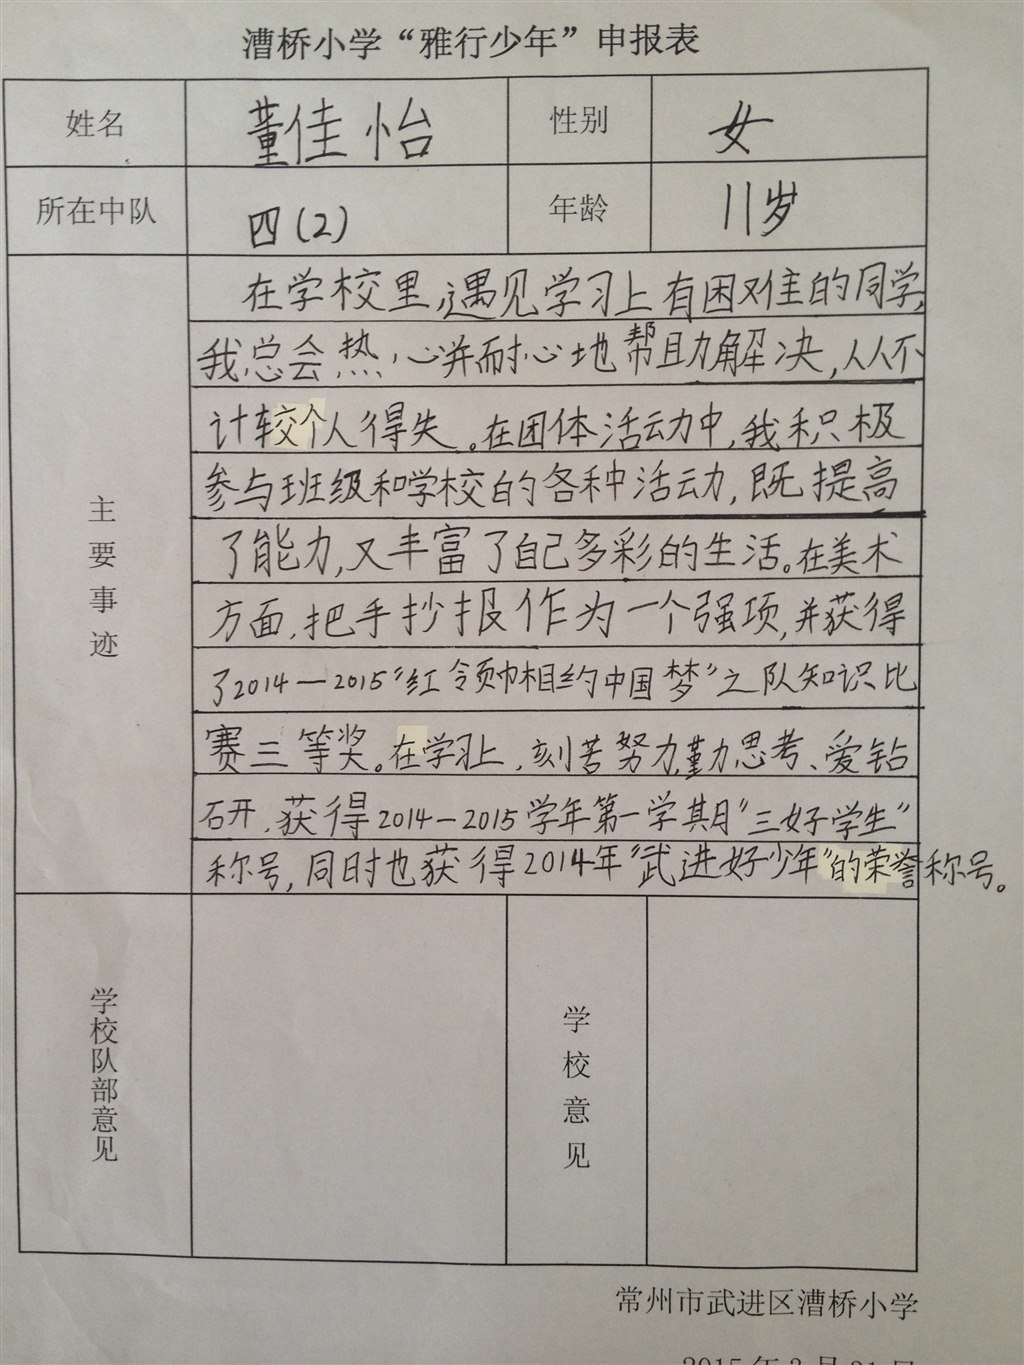 漕桥小学“雅行少年”申报表
姓名 董佳怡 性别 女
所在中队 四(2) 年龄 11岁
主要事迹
在学校里,遇见学习上有困难的同学,
我总会热心并耐心地帮助解决,从不
计较个人得失。在团体活动中,我积极
参与班级和学校的各种活动,既提高
了能力,又丰富了自己多彩的生活。在美术
方面,把手抄报作为一个强项,并获得
了2014—2015“红领巾相约中国梦”之队知识比
赛三等奖。在学习上,刻苦努力,勤力思考、爱钻
研,获得2014—2015学年第一学期“三好学生”
称号,同时也获得2014年“武进好少年”的荣誉称号。
学校队部意见
学校意见
常州市武进区漕桥小学